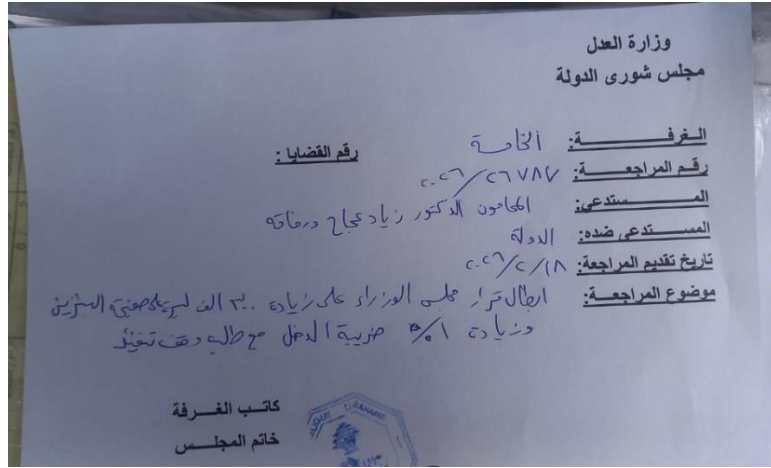 وزارة العدل
مجلس شورى الدولة
الغرفة: الخامسة
رقم القضايا:
رقم المراجعة: ٢٦٧٨٧/٢٠٢٦
المستدعي: المحامون الدكتور زياد عجاج ورفاقه
المستدعى ضده: الدولة
تاريخ تقديم المراجعة: ٢٠٢٦/٢/١٨
موضوع المراجعة: ابطال قرار مجلس الوزراء على زيادة ٣٠٠ الف ليرة على صفيحة البنزين
وزيادة ١% ضريبة الدخل مع طلب وقف تنفيذ
كاتب الغرفة
خاتم المجلس